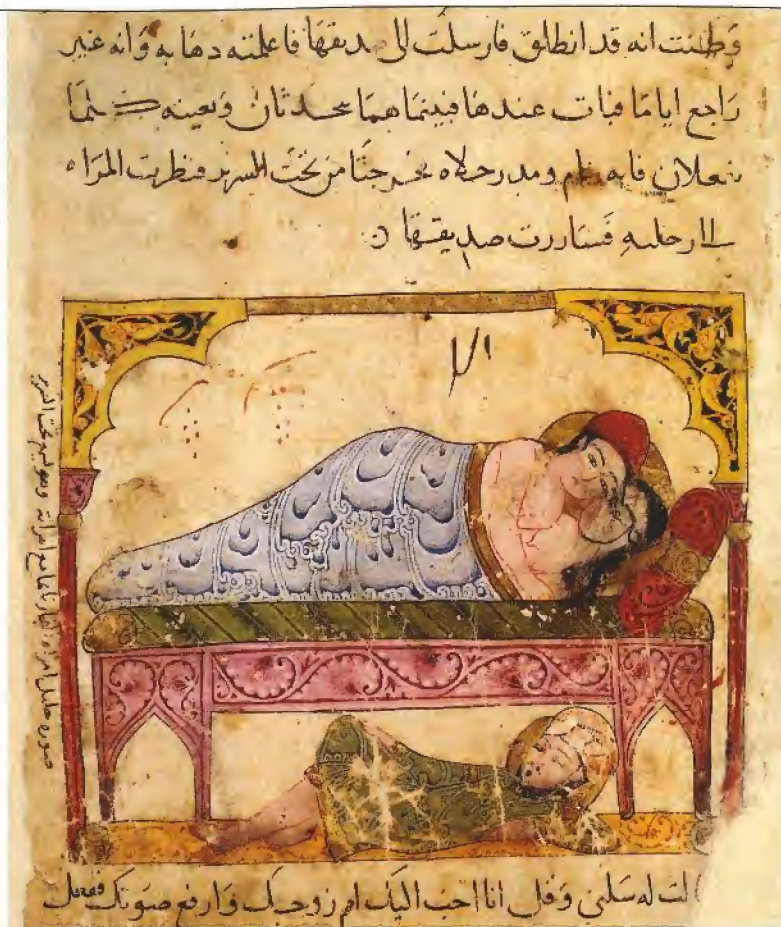 وظنت انه قد انطلق فارسلت الى صديقها فاعلمته دهابه وانه غير
راجع اياما فبات عندها فبينما هما يتحدثان وبعينه
فانه نام ومد رجلاه فخرجتا من تحت السرير فنظرت المراه
الا رجليه فساررت صديقها
صوره حليل امراه وهو نايم تحت السرير
لت له سلنى وقل انا احب اليك ام زوجك وارفع صوتك ففعل